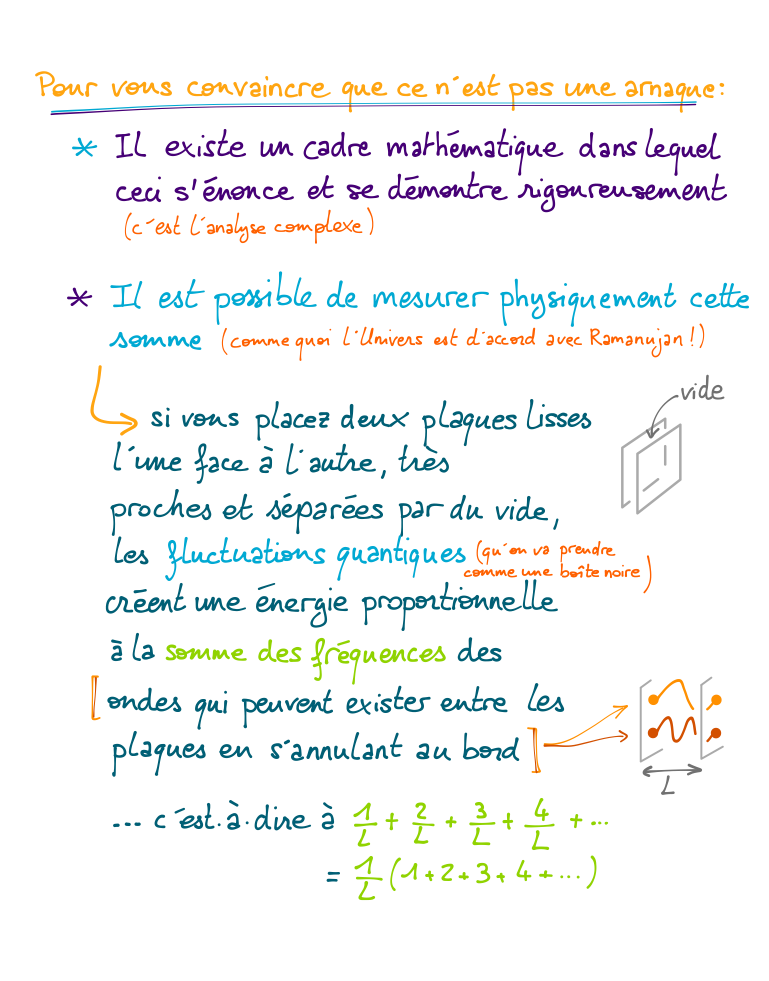 Pour vous convaincre que ce n'est pas une arnaque:
* Il existe un cadre mathématique dans lequel
ceci s'énonce et se démontre rigoureusement
(c'est l'analyse complexe)
* Il est possible de mesurer physiquement cette
somme (comme quoi l'Univers est d'accord avec Ramanujan!)
vide
si vous placez deux plaques lisses
l'une face à l'autre, très
proches et séparées par du vide,
les fluctuations quantiques (qu'on va prendre
comme une boîte noire)
créent une énergie proportionnelle
à la somme des fréquences des
[ondes qui peuvent exister entre les
plaques en s'annulant au bord]
L
... c'est-à-dire à 1/L + 2/L + 3/L + 4/L + ...
= 1/L (1+2+3+4+...)